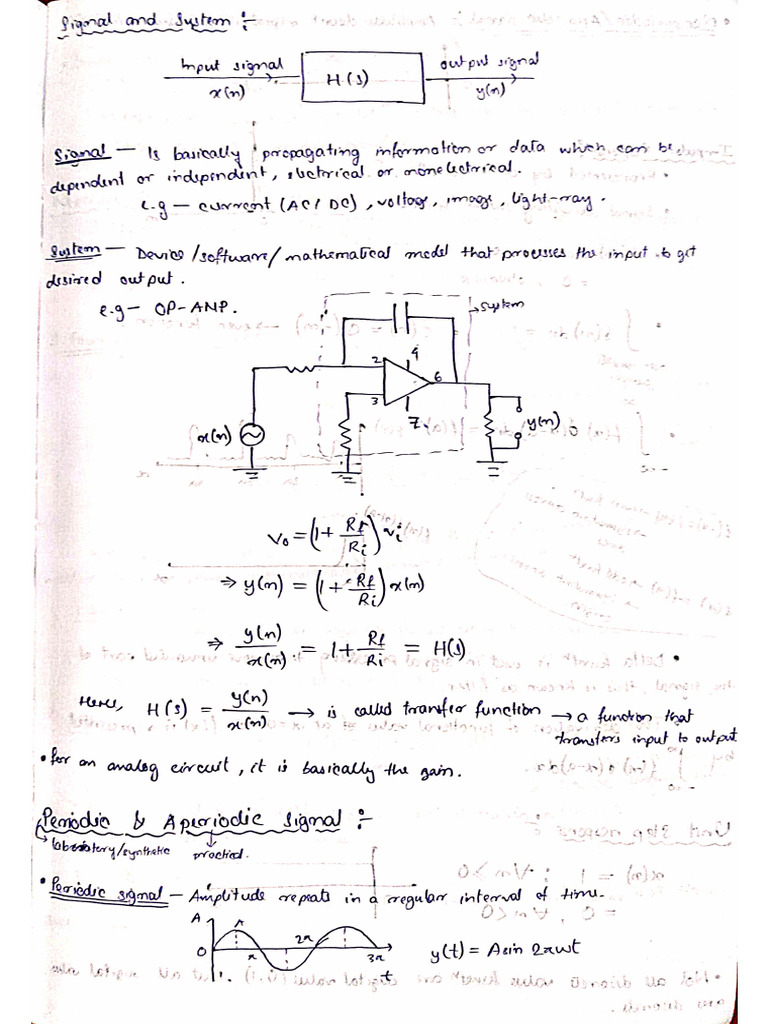 Signal and System :-
Input signal
x(n)
H(s)
output signal
y(n)
Signal — Is basically propagating information or data which can be
dependent or independent, electrical or nonelectrical.
e.g — current (AC/DC), voltage, image, light-ray.
System — Device/software/mathematical model that processes the input to get
desired output.
e.g — OP-AMP.
→ System
2
4
6
3
7
x(n)
y(n)
V₀ = (1 + Rf/Ri) vi
⇒ y(n) = (1 + Rf/Ri) x(n)
⇒ y(n)/x(n) = 1 + Rf/Ri = H(s)
Here, H(s) = y(n)/x(n) → is called transfer function → a function that
transfers input to output
• for an analog circuit, it is basically the gain.
Periodic & Aperiodic Signal :-
→ laboratory/synthetic practical.
• Periodic signal — Amplitude repeats in a regular interval of time.
A
0
π
2π
3π
t
y(t) = A sin 2πωt